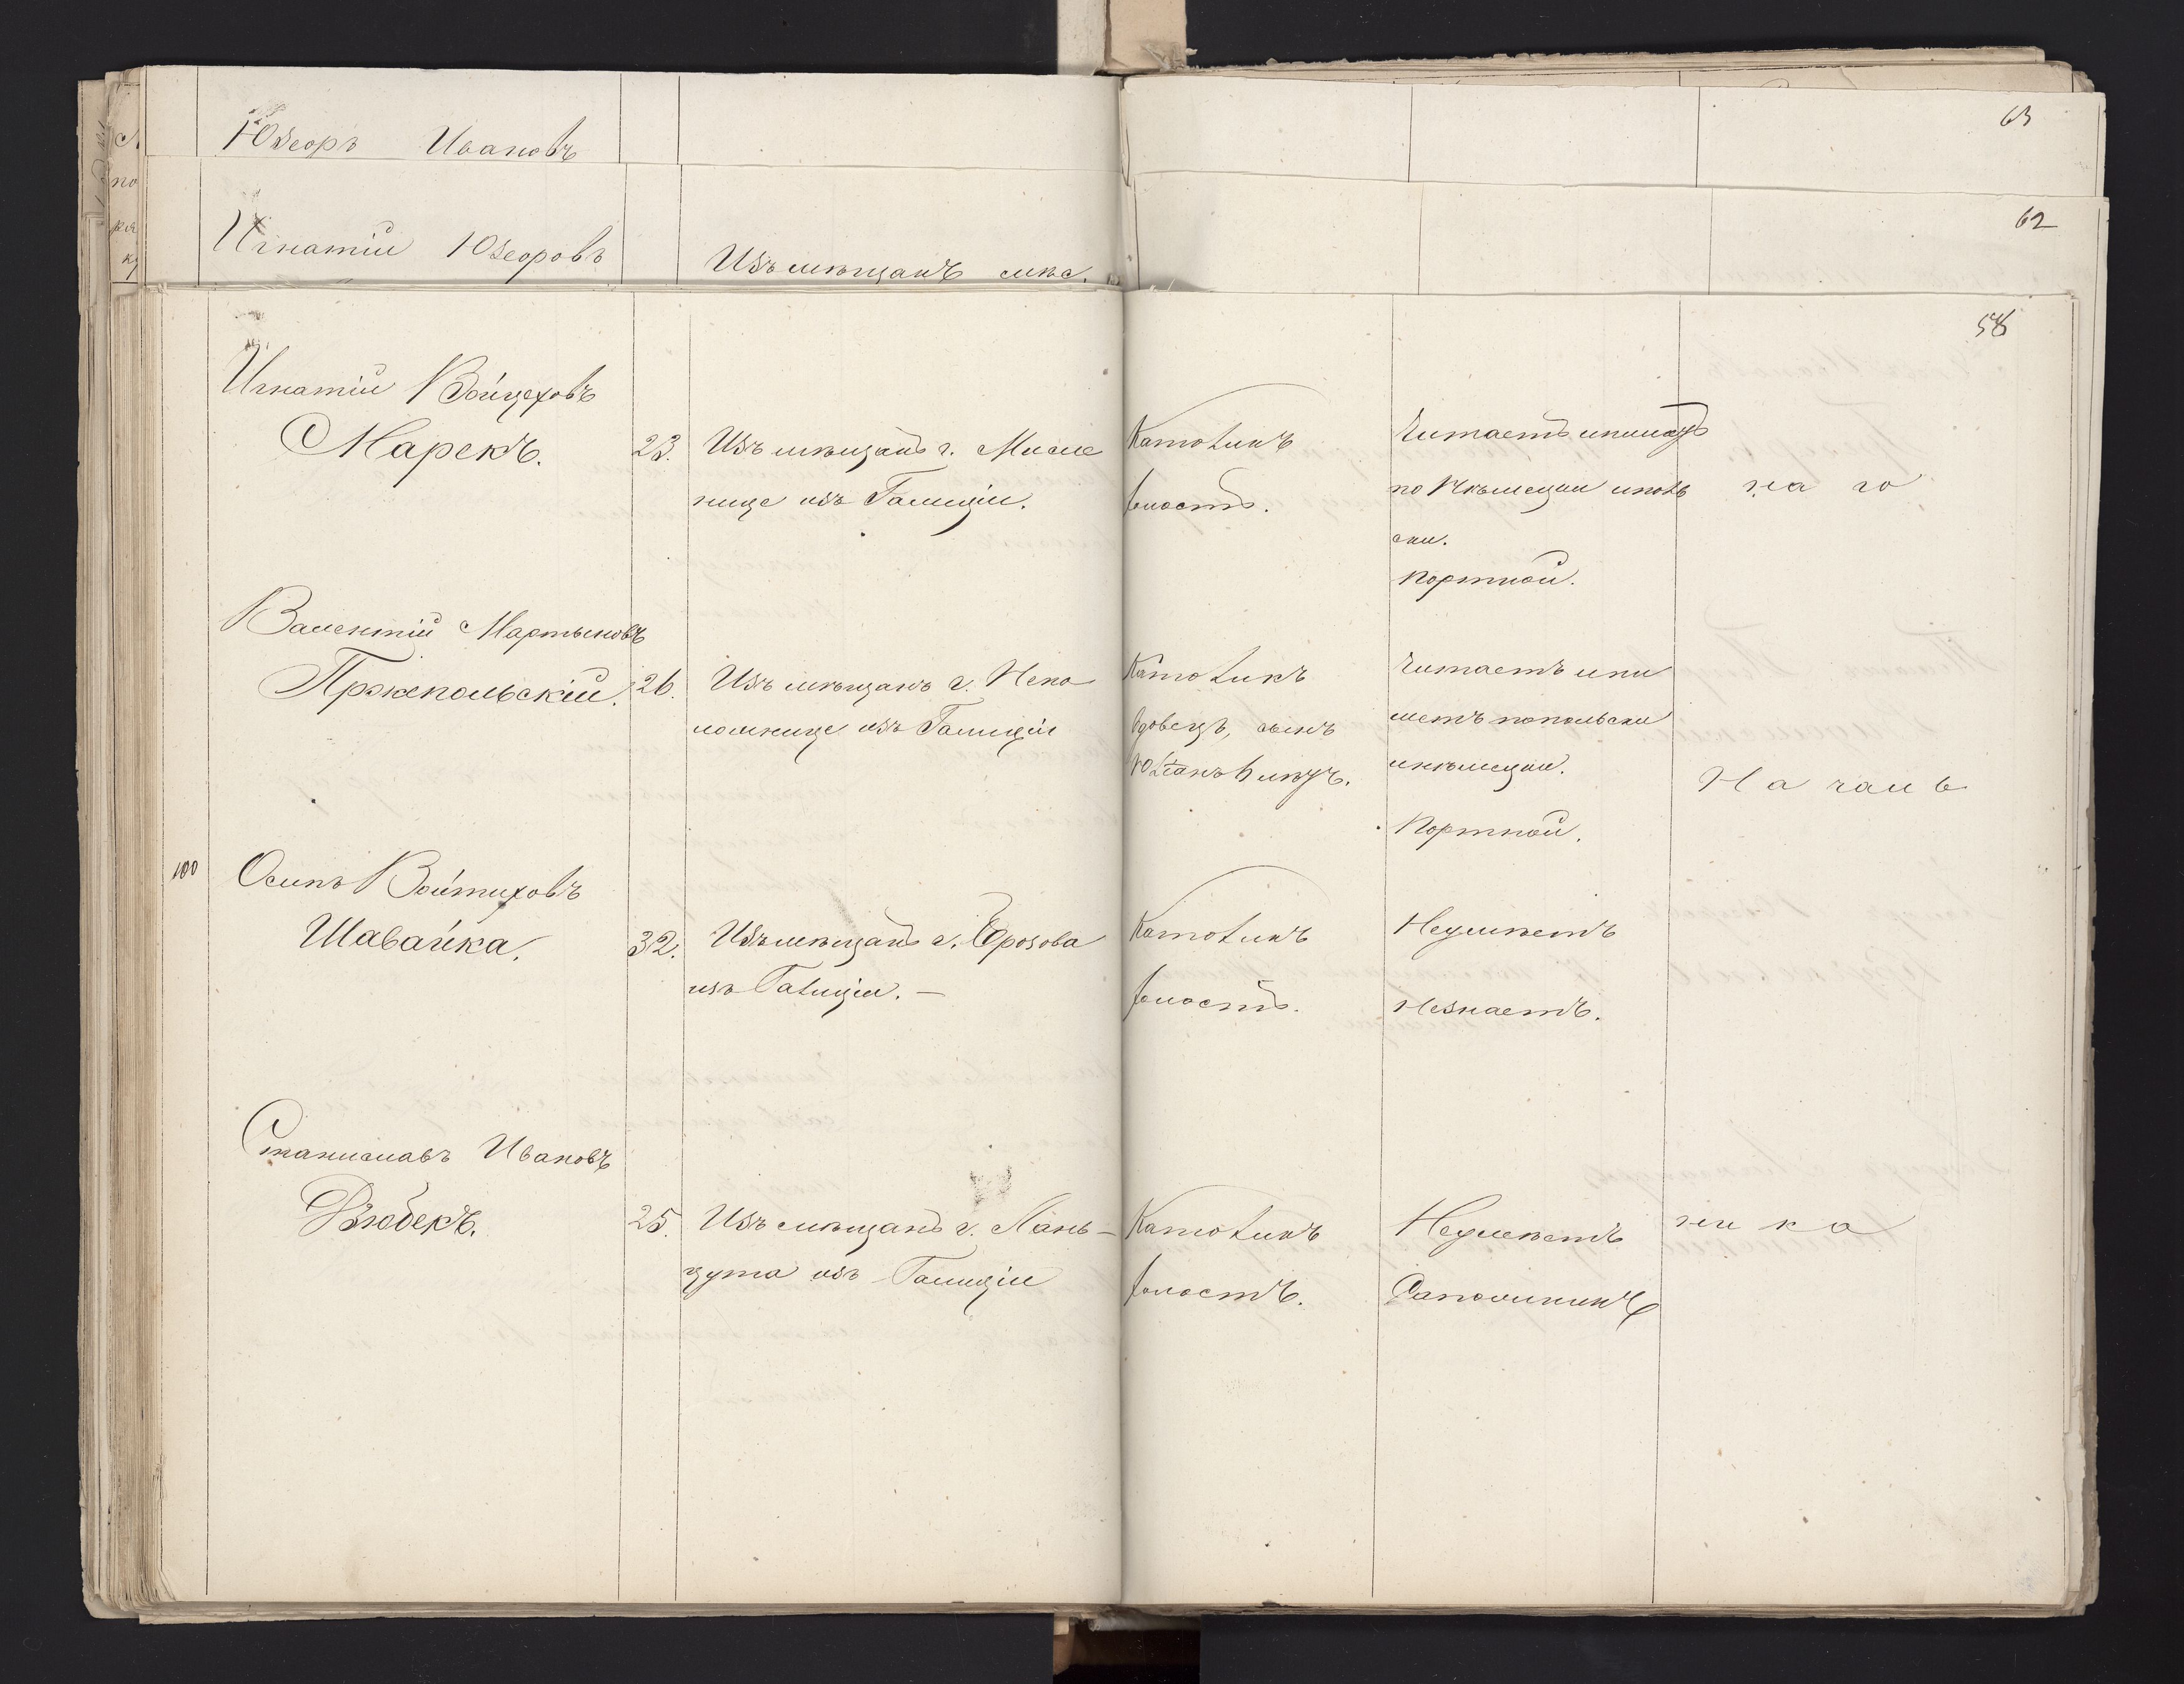 63
Юзефъ Ивановъ
62
Игнатій Юзефовъ
Изъ мѣщанъ мѣс.
58
Игнатій Войцеховъ
Марекъ.
23.
Изъ мѣщанъ г. Мисле
нице изъ Галиціи.
Католикъ
холостъ.
Читаетъ и пишетъ
по Нѣмецки и поль
ски.
Портной.
на го
Валентій Мартыновъ
Пржепольскій.
26.
Изъ мѣщанъ г. Непо
ломнице изъ Галиціи
Католикъ
вдовецъ, сынъ
Читаетъ и пи
шетъ попольски
и нѣмецки.
Портной.
Началь
100
Осипъ Войтиховъ
Шавайка.
32.
Изъ мѣщанъ г.
изъ Галиціи. —
Католикъ
холостъ.
Неумѣетъ
Незнаетъ.
Станиславъ Ивановъ
Дзюбекъ.
25.
Изъ мѣщанъ г. Лань-
цута изъ Галиціи
Католикъ
холостъ.
Неумѣетъ
Сапожникъ
ника